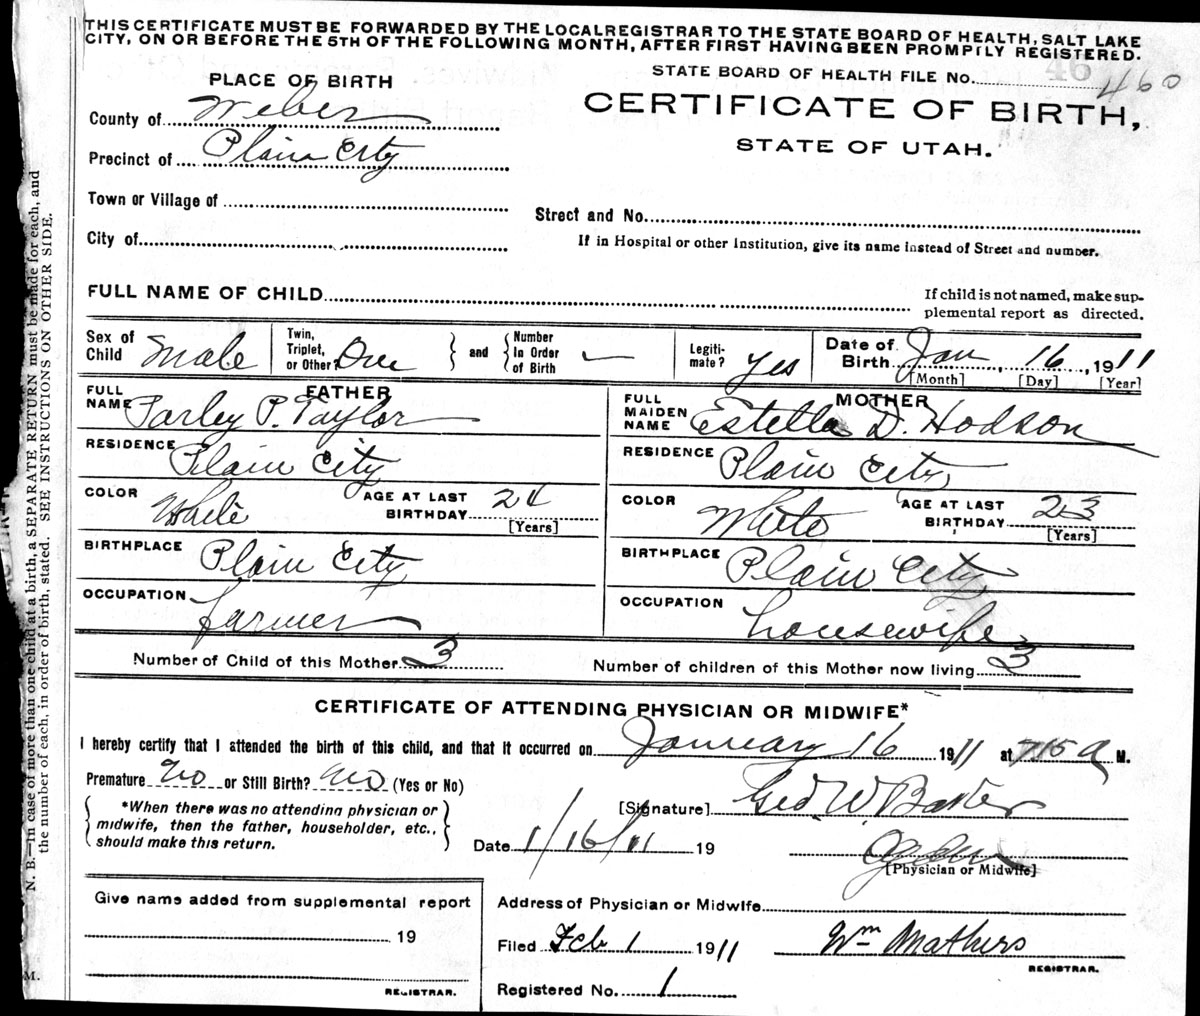 THIS CERTIFICATE MUST BE FORWARDED BY THE LOCAL REGISTRAR TO THE STATE BOARD OF HEALTH, SALT LAKE
CITY, ON OR BEFORE THE 5TH OF THE FOLLOWING MONTH, AFTER FIRST HAVING BEEN PROMPTLY REGISTERED.
PLACE OF BIRTH
STATE BOARD OF HEALTH FILE No. 460
County of Weber
CERTIFICATE OF BIRTH,
Precinct of Plain City
STATE OF UTAH.
Town or Village of
Street and No.
City of
If in Hospital or other Institution, give its name instead of Street and number.
FULL NAME OF CHILD
If child is not named, make sup-
plemental report as directed.
Sex of Child Male
Twin, Triplet, or Other. One
and
Number In Order of Birth
Legiti- mate? Yes
Date of Birth Jan 16, 1911
[Month] [Day] [Year]
FATHER
FULL NAME Parley P. Taylor
MOTHER
FULL MAIDEN NAME Estella D. Hodson
RESIDENCE Plain City
RESIDENCE Plain City
COLOR White
AGE AT LAST BIRTHDAY 24 [Years]
COLOR White
AGE AT LAST BIRTHDAY 23 [Years]
BIRTHPLACE Plain City
BIRTHPLACE Plain City
OCCUPATION farmer
OCCUPATION housewife
Number of Child of this Mother 3
Number of children of this Mother now living 3
CERTIFICATE OF ATTENDING PHYSICIAN OR MIDWIFE*
I hereby certify that I attended the birth of this child, and that it occurred on January 16 1911 at 715 a M.
Premature no or Still Birth? no (Yes or No)
*When there was no attending physician or
midwife, then the father, householder, etc.,
should make this return.
[Signature] Geo W Baxter
Date 1/16/11 19
Ogden
[Physician or Midwife]
Give name added from supplemental report
19
REGISTRAR.
Address of Physician or Midwife
Filed Feb 1 1911
Wm Mathers
REGISTRAR.
Registered No. 1
N. B.—In case of more than one child at a birth, a SEPARATE RETURN must be made for each, and
the number of each, in order of birth, stated. SEE INSTRUCTIONS ON OTHER SIDE.